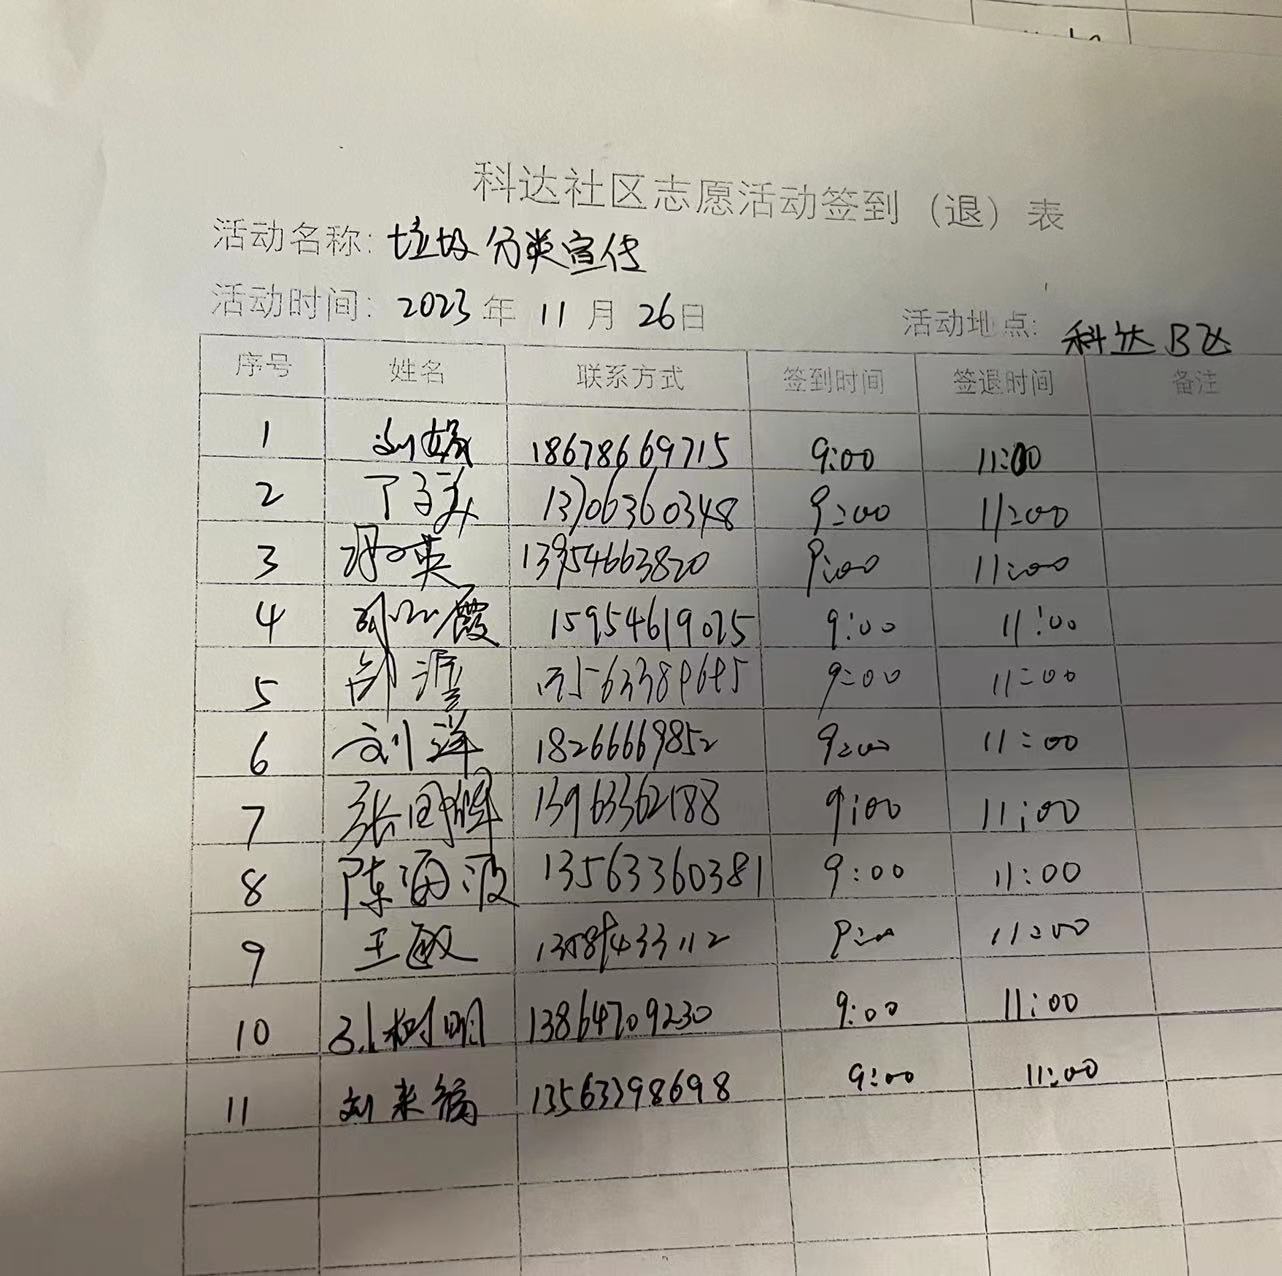 科达社区志愿活动签到（退）表
活动名称: 垃圾分类宣传
活动时间: 2023年 11月 26日 活动地点: 科达B区
序号 姓名 联系方式 签到时间 签退时间 备注
1 18678669715 9:00 11:00
2 13706360348 9:00 11:00
3 13954663820 9:00 11:00
4 15954619075 9:00 11:00
5 9:00 11:00
6 刘洋 18266669852 9:00 11:00
7 张国辉 13963362188 9:00 11:00
8 陈海波 13563360381 9:00 11:00
9 王敏 9:00 11:00
10 孙树明 13864709230 9:00 11:00
11 13563398698 9:00 11:00